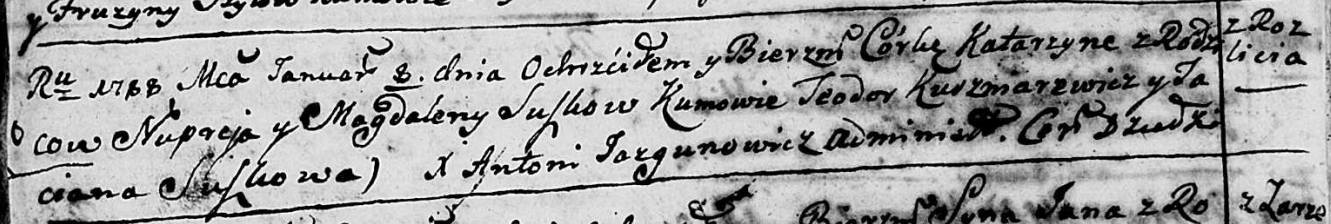 Ru 1788 Mca Januar 8. dnia Ochrzciłem y Bierzm Córkę Katarzynę z Rodzi z Roz
cow Nupreja y Magdaleny Suszkow Kumowie Teodor Kuszmarzewicz y Ta licia
ciana Suszkowa) X Antoni Jazgunowicz Administr. Cer Dziedzi
Bierzm Syna Jana z Ro z Zarze